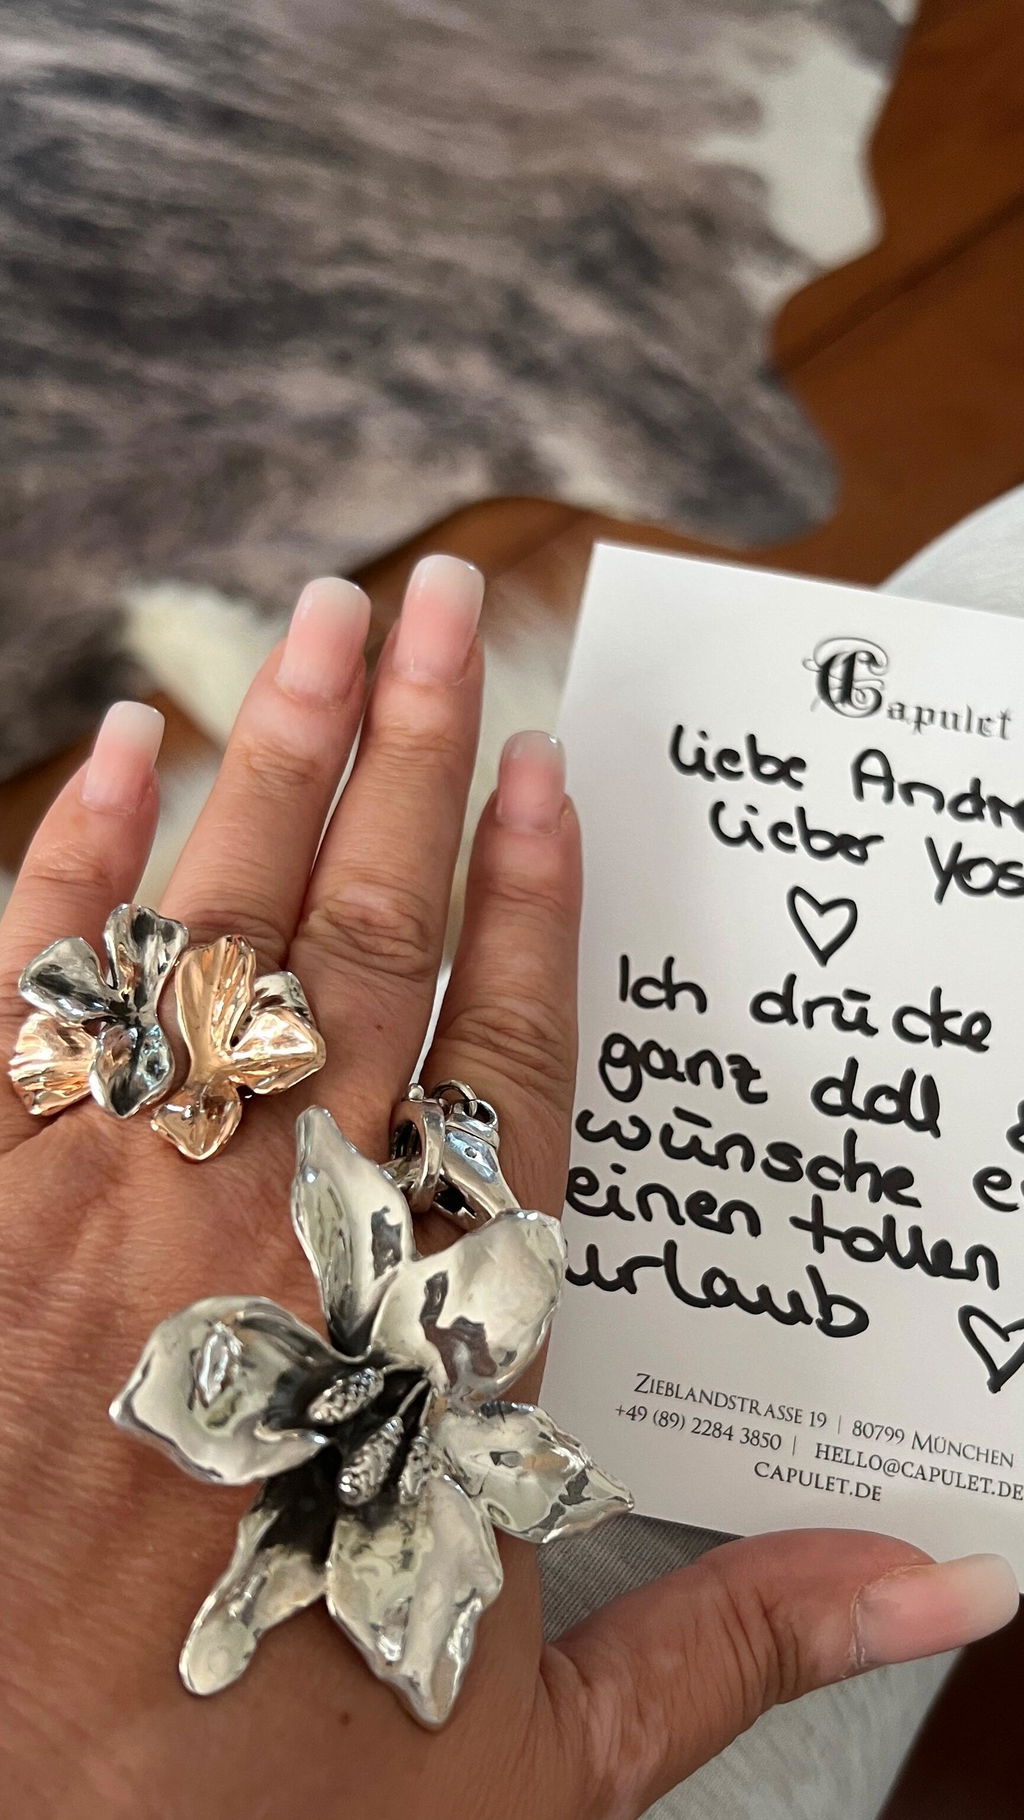 Capulet
Liebe Andre
Lieber Yos
Ich drücke
ganz doll &
wünsche e
einen tollen
urlaub
Zieblandstrasse 19 | 80799 München
+49 (89) 2284 3850 | hello@capulet.de
capulet.de